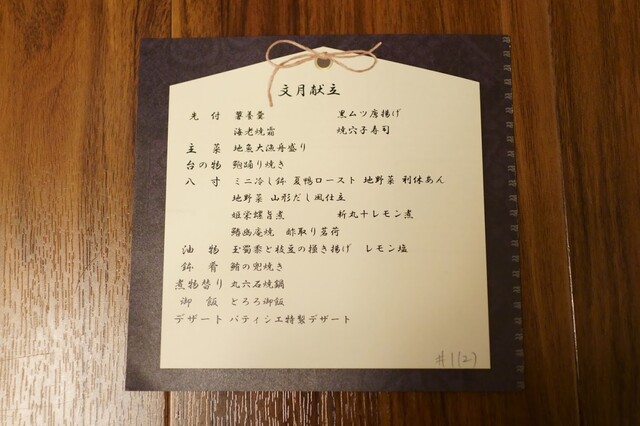 文月献立
先付 薯蕷羹 黒ムツ唐揚げ
海老焼霜 焼穴子寿司
主菜 地魚大漁舟盛り
台の物 鮑踊り焼き
八寸 ミニ冷し鉢 夏鴨ロースト 地野菜 利休あん
地野菜 山形だし風仕立
姫栄螺旨煮 新丸十レモン煮
鰆幽庵焼 酢取り茗荷
油物 玉蜀黍と枝豆の掻き揚げ レモン塩
鉢肴 鮪の兜焼き
煮物替り 丸六石焼鍋
御飯 とろろ御飯
デザート パティシエ特製デザート
#1(2)